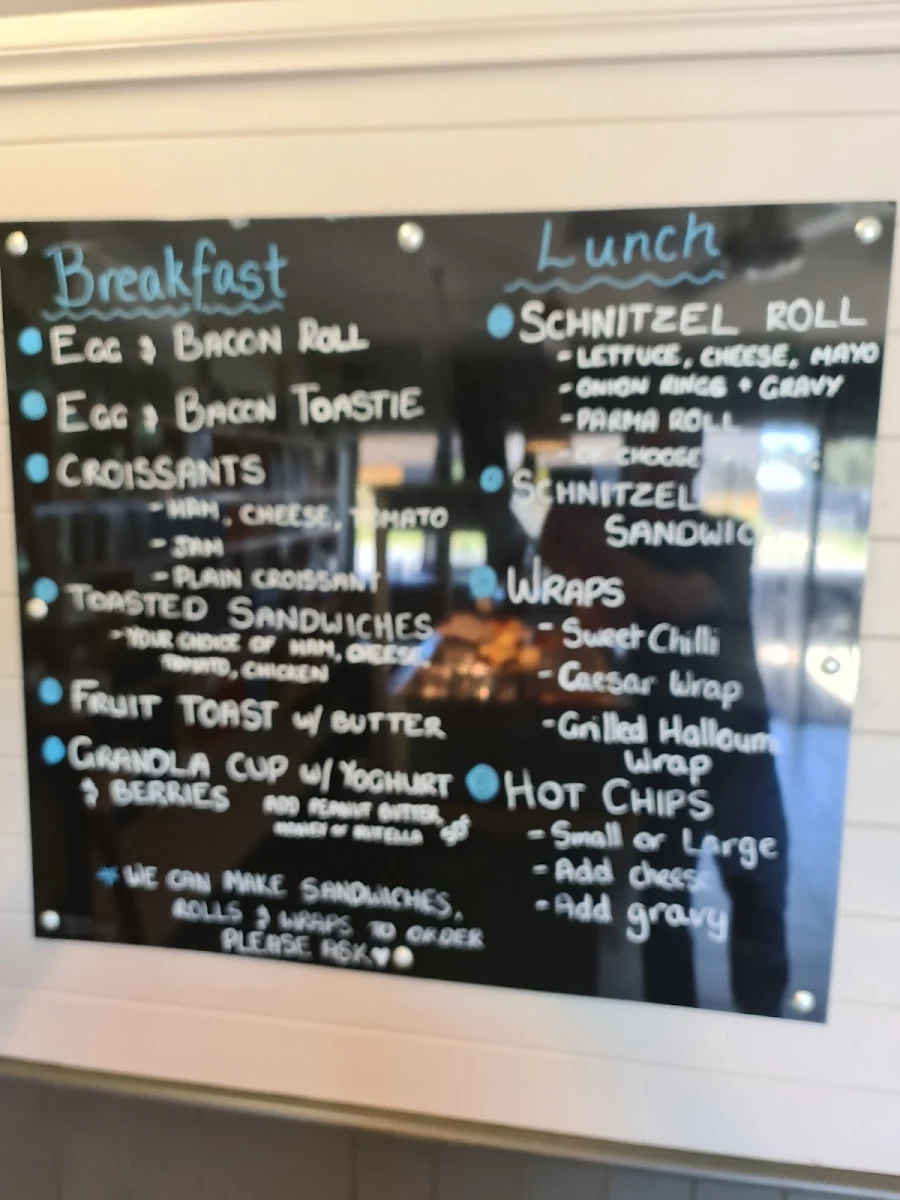 Breakfast
EGG & BACON ROLL
EGG & BACON TOASTIE
CROISSANTS
- HAM, CHEESE, TOMATO
- JAM
- PLAIN CROISSANT
TOASTED SANDWICHES
- YOUR CHOICE OF HAM, CHEESE,
TOMATO, CHICKEN
FRUIT TOAST W/ BUTTER
GRANOLA CUP W/ YOGHURT
& BERRIES
ADD PEANUT BUTTER,
HONEY OR NUTELLA
* WE CAN MAKE SANDWICHES,
ROLLS & WRAPS TO ORDER
PLEASE ASK ♥
Lunch
SCHNITZEL ROLL
- LETTUCE, CHEESE, MAYO
- ONION RINGS + GRAVY
- PARMA ROLL
- OR CHOOSE
SCHNITZEL
SANDWIC
WRAPS
- Sweet Chilli
- Caesar Wrap
- Grilled Halloumi
Wrap
HOT CHIPS
- Small or Large
- Add cheese
- Add gravy